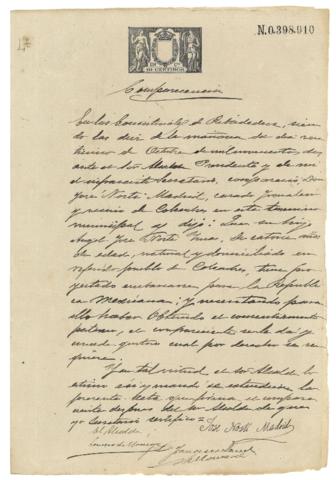 N.0.398.910
10 CENTIMOS
Comparecencia
En las Consistoriales de Ribadedeva, siendo
las diez de la mañana de dia
de Octubre de mil novecientos dos,
ante el Sr. Alcalde Presidente y de mi
el infrascrito Secretario, compareció Don
José Noste Madrid, casado, Jornalero
y vecino de Colombres, en este termino
municipal y dijo: Que su hijo
Angel José Noste, de catorce años
de edad, natural y domiciliado en
repetido pueblo de Colombres, tiene pro
yectado embarcarse para la Republi
ca Mexicana; Y necesitando para
ello haber obtenido el consentimiento
paterno, el compareciente se lo dá y
concede gustoso cual por derecho se re
quiere.
Y en tal virtud el Sr. Alcalde lo
estimo así y mandó se extendiera la
presente acta que firma el compare
ciente despues del Sr. Alcalde de que
yo Secretario certifico =
José Noste Madrid
El Alcalde,
Francisco